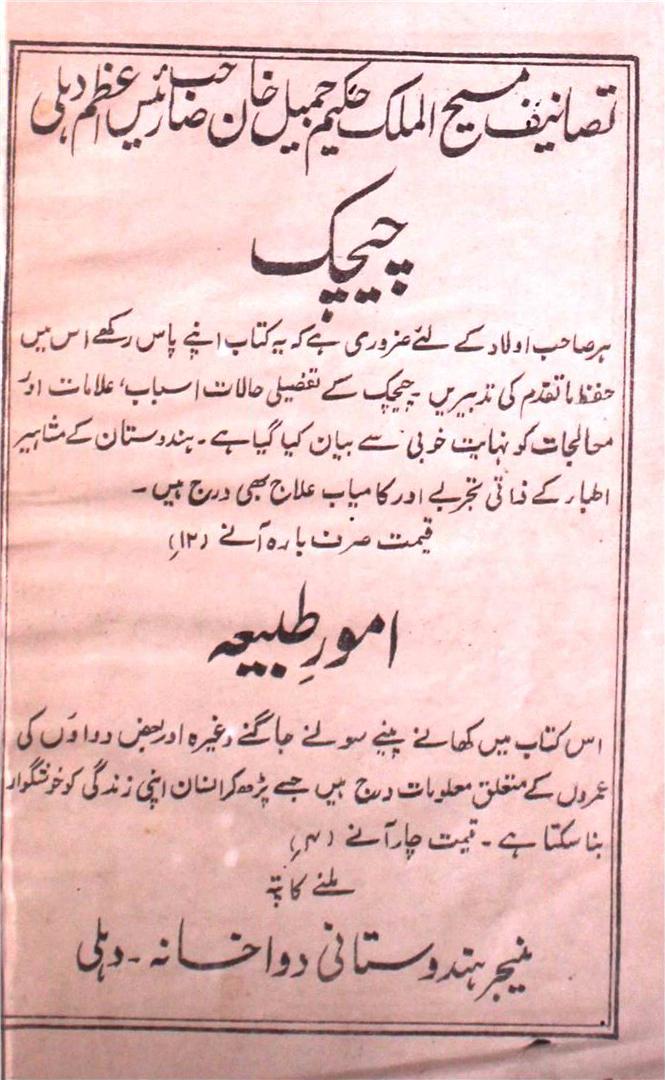 تصانیف مسیح الملک حکیم جمیل خان صاحب رئیس اعظم دہلی
چیچک
ہر صاحب اولاد کے لئے ضروری ہے کہ یہ کتاب اپنے پاس رکھے اس میں
حفظ ماتقدم کی تدبیریں ۔ چیچک کے تفصیلی حالات اسباب، علامات اور
معالجات کو نہایت خوبی سے بیان کیا گیا ہے۔ ہندوستان کے مشاہیر
اطبار کے ذاتی تجربے اور کامیاب علاج بھی درج ہیں ۔
قیمت صرف بارہ آنے (۱۲؍)
امورِ طبیعہ
اس کتاب میں کھانے پینے سونے جاگنے وغیرہ اور بعض دواؤں کی
عمروں کے متعلق معلومات درج ہیں جسے پڑھ کر انسان اپنی زندگی کو خوشگوار
بنا سکتا ہے ۔ قیمت چار آنے (۴؍)
ملنے کا پتہ
منیجر ہندوستانی دواخانہ ۔ دہلی